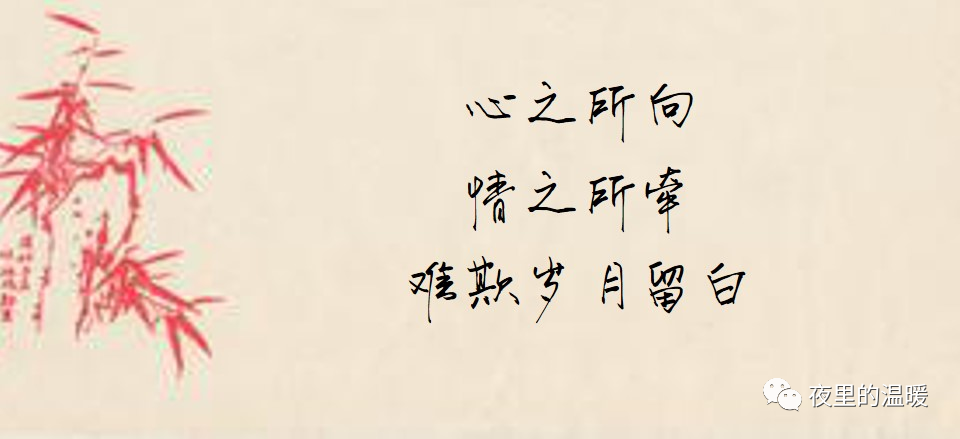 心之所向
情之所牵
难欺岁月留白
夜里的温暖